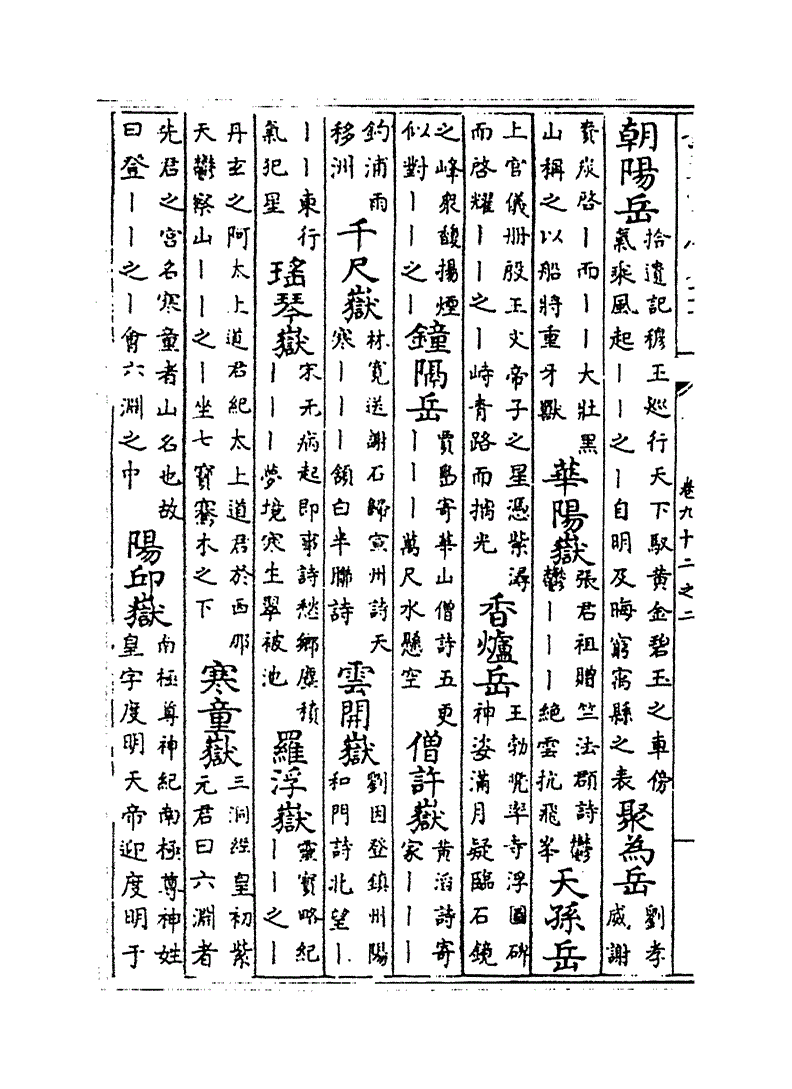 卷九十二之二
朝陽岳
拾遺記穆王巡行天下馭黄金碧玉之車傍
氣乘風起丨丨之丨自明及晦窮寓縣之表
聚為岳
劉孝
威謝
賚炭啓丨而丨丨大壯黑
山稱之以船將重牙獸
華陽嶽
張君祖贈竺法頵詩鬱
鬱丨丨丨絶雲抗飛峯
天孫岳
上官儀册殷王文帝子之星憑紫潯
而啓耀丨丨之丨峙青路而摛光
香爐岳
王勃兜率寺浮圖碑
神姿滿月疑臨石鏡
之峰衆馥揚煙
似對丨丨之丨
鐘隅岳
賈島寄華山僧詩五更
丨丨丨萬尺水懸空
僧許嶽
黄滔詩寄
家丨丨丨
釣浦雨
移洲
千尺嶽
林寛送謝石歸宣州詩天
寒丨丨丨頷白半聯詩
雲開嶽
劉因登鎮州陽
和門詩北望丨
丨丨東行
氣犯星
瑤琴嶽
宋无病起即事詩愁鄉塵積
丨丨丨夢境寒生翠被池
羅浮嶽
靈寶略紀
丨丨之丨
丹玄之阿太上道君紀太上道君於西那
天鬱察山丨丨之丨坐七寶騫木之下
寒童嶽
三洞經皇初紫
元君曰六淵者
先君之宫名寒童者山名也故
曰登丨丨之丨會六淵之中
陽邱嶽
南極尊神紀南極尊神姓
皇字度明天帝迎度明于